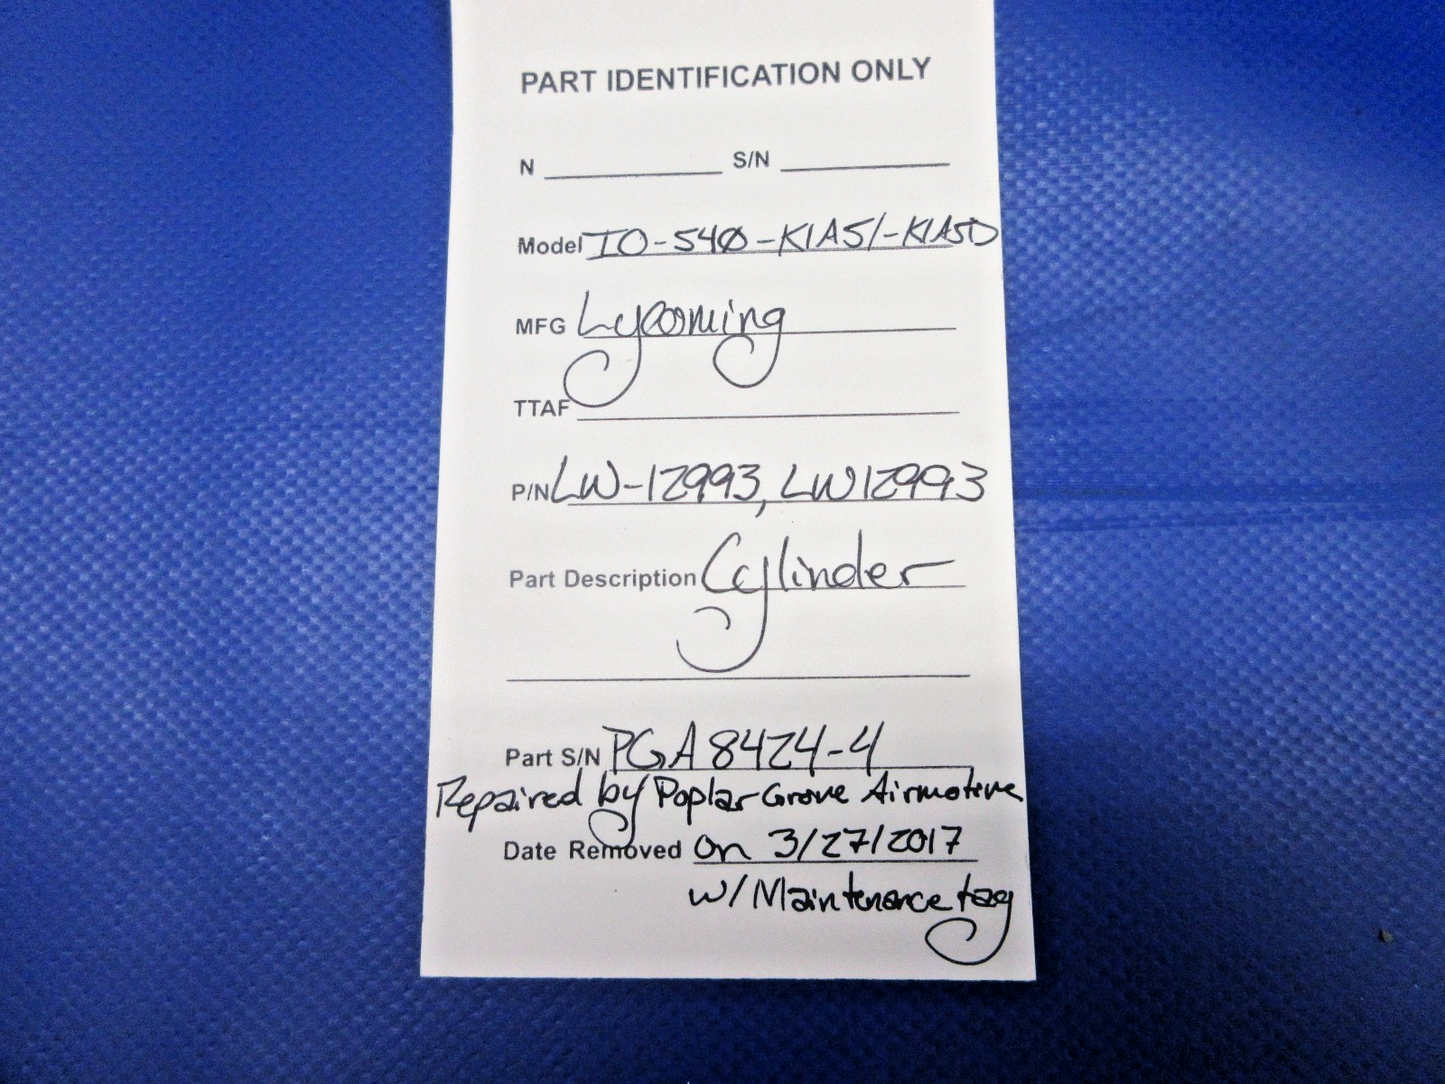 PART IDENTIFICATION ONLY
N ____________ S/N ____________
Model IO-540-K1A5/-K1A5D
MFG Lycoming
TTAF
P/N LW-12993, LW12993
Part Description Cylinder
Part S/N PGA8424-4
Repaired by Poplar Grove Airmotive
Date Removed on 3/27/2017
w/ Maintenance tag